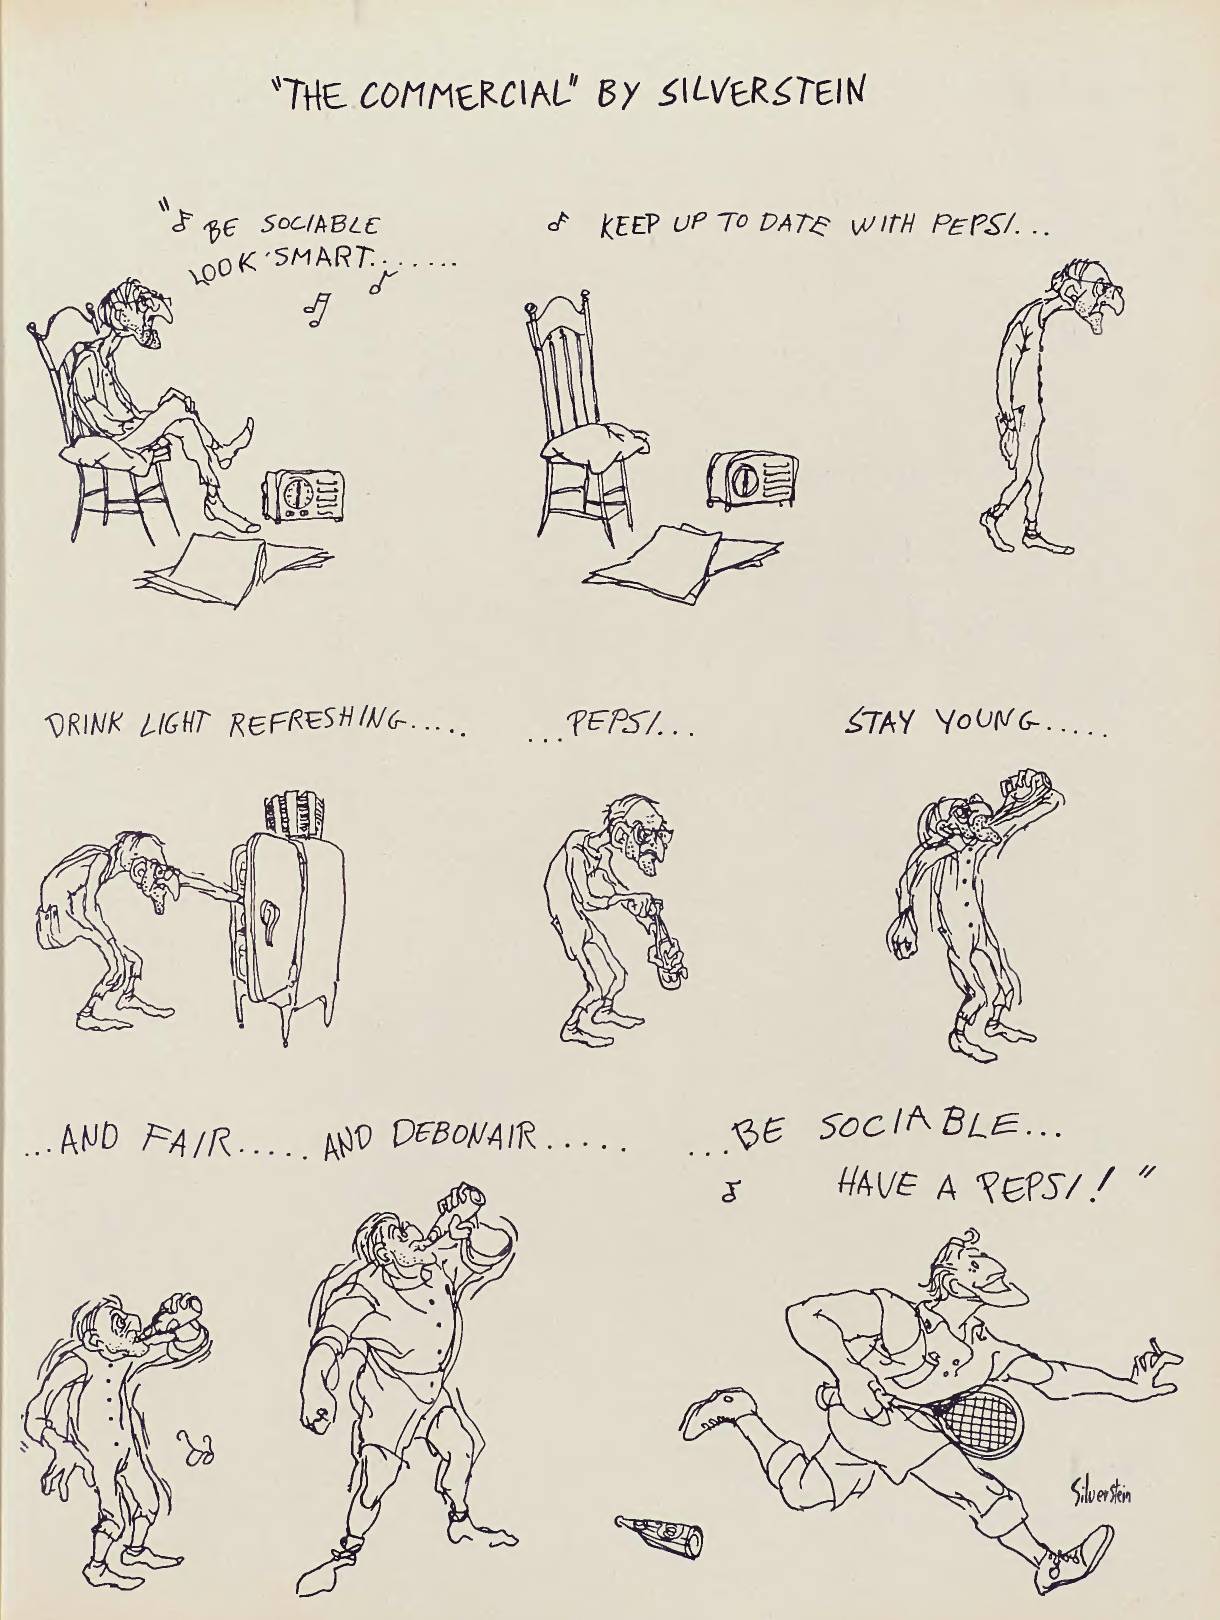 "THE COMMERCIAL" BY SILVERSTEIN
"♪ BE SOCIABLE
LOOK SMART.......
♪ KEEP UP TO DATE WITH PEPSI...
DRINK LIGHT REFRESHING.....
...PEPSI...
STAY YOUNG.....
...AND FAIR.....
AND DEBONAIR.....
...BE SOCIABLE...
♪ HAVE A PEPSI!"
Silverstein